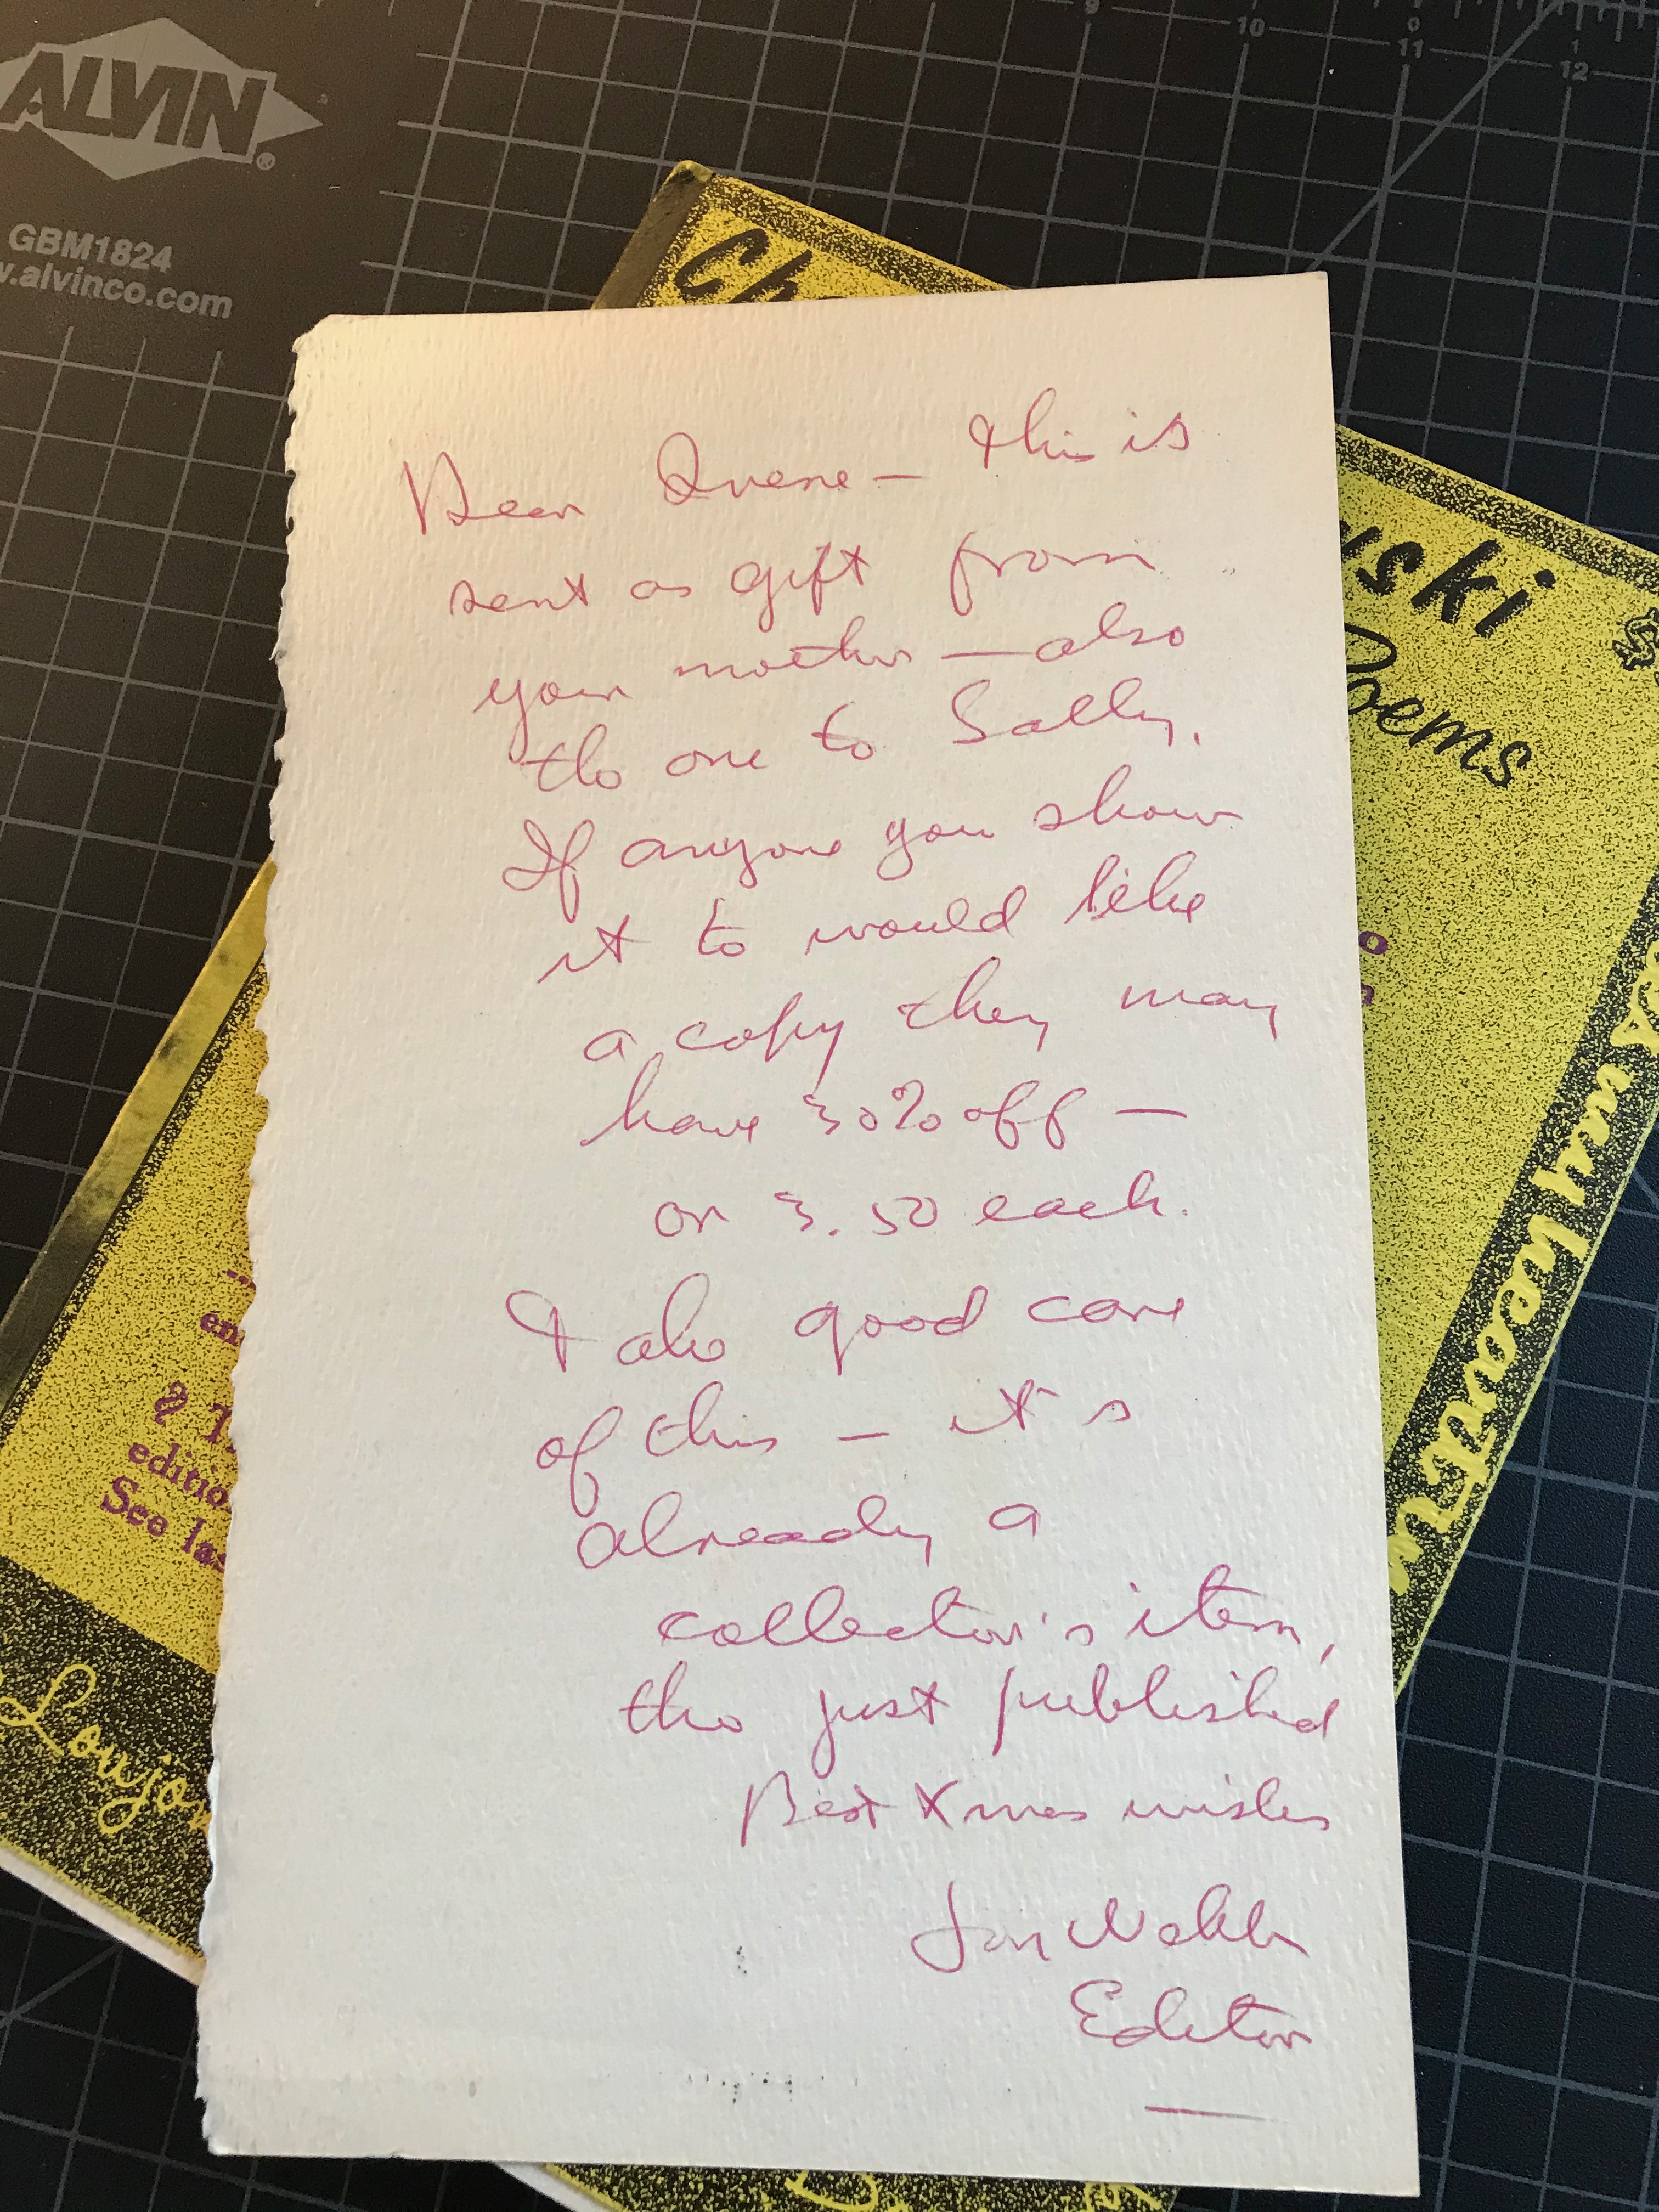 ALVIN®
GBM1824
w.alvinco.com
9
10
11
12
Ch
uski
Poems
Dear Quene — this is
sent as gift from
your mother — also
the one to Sally.
If anyone you show
it to would like
a copy they may
have 30% off —
or 3.50 each.
Take good care
of this — it s
already a
collector's item,
tho just published
Best Xmas wishes
Jon Webb
Editor
en
edition
See las
Loujon